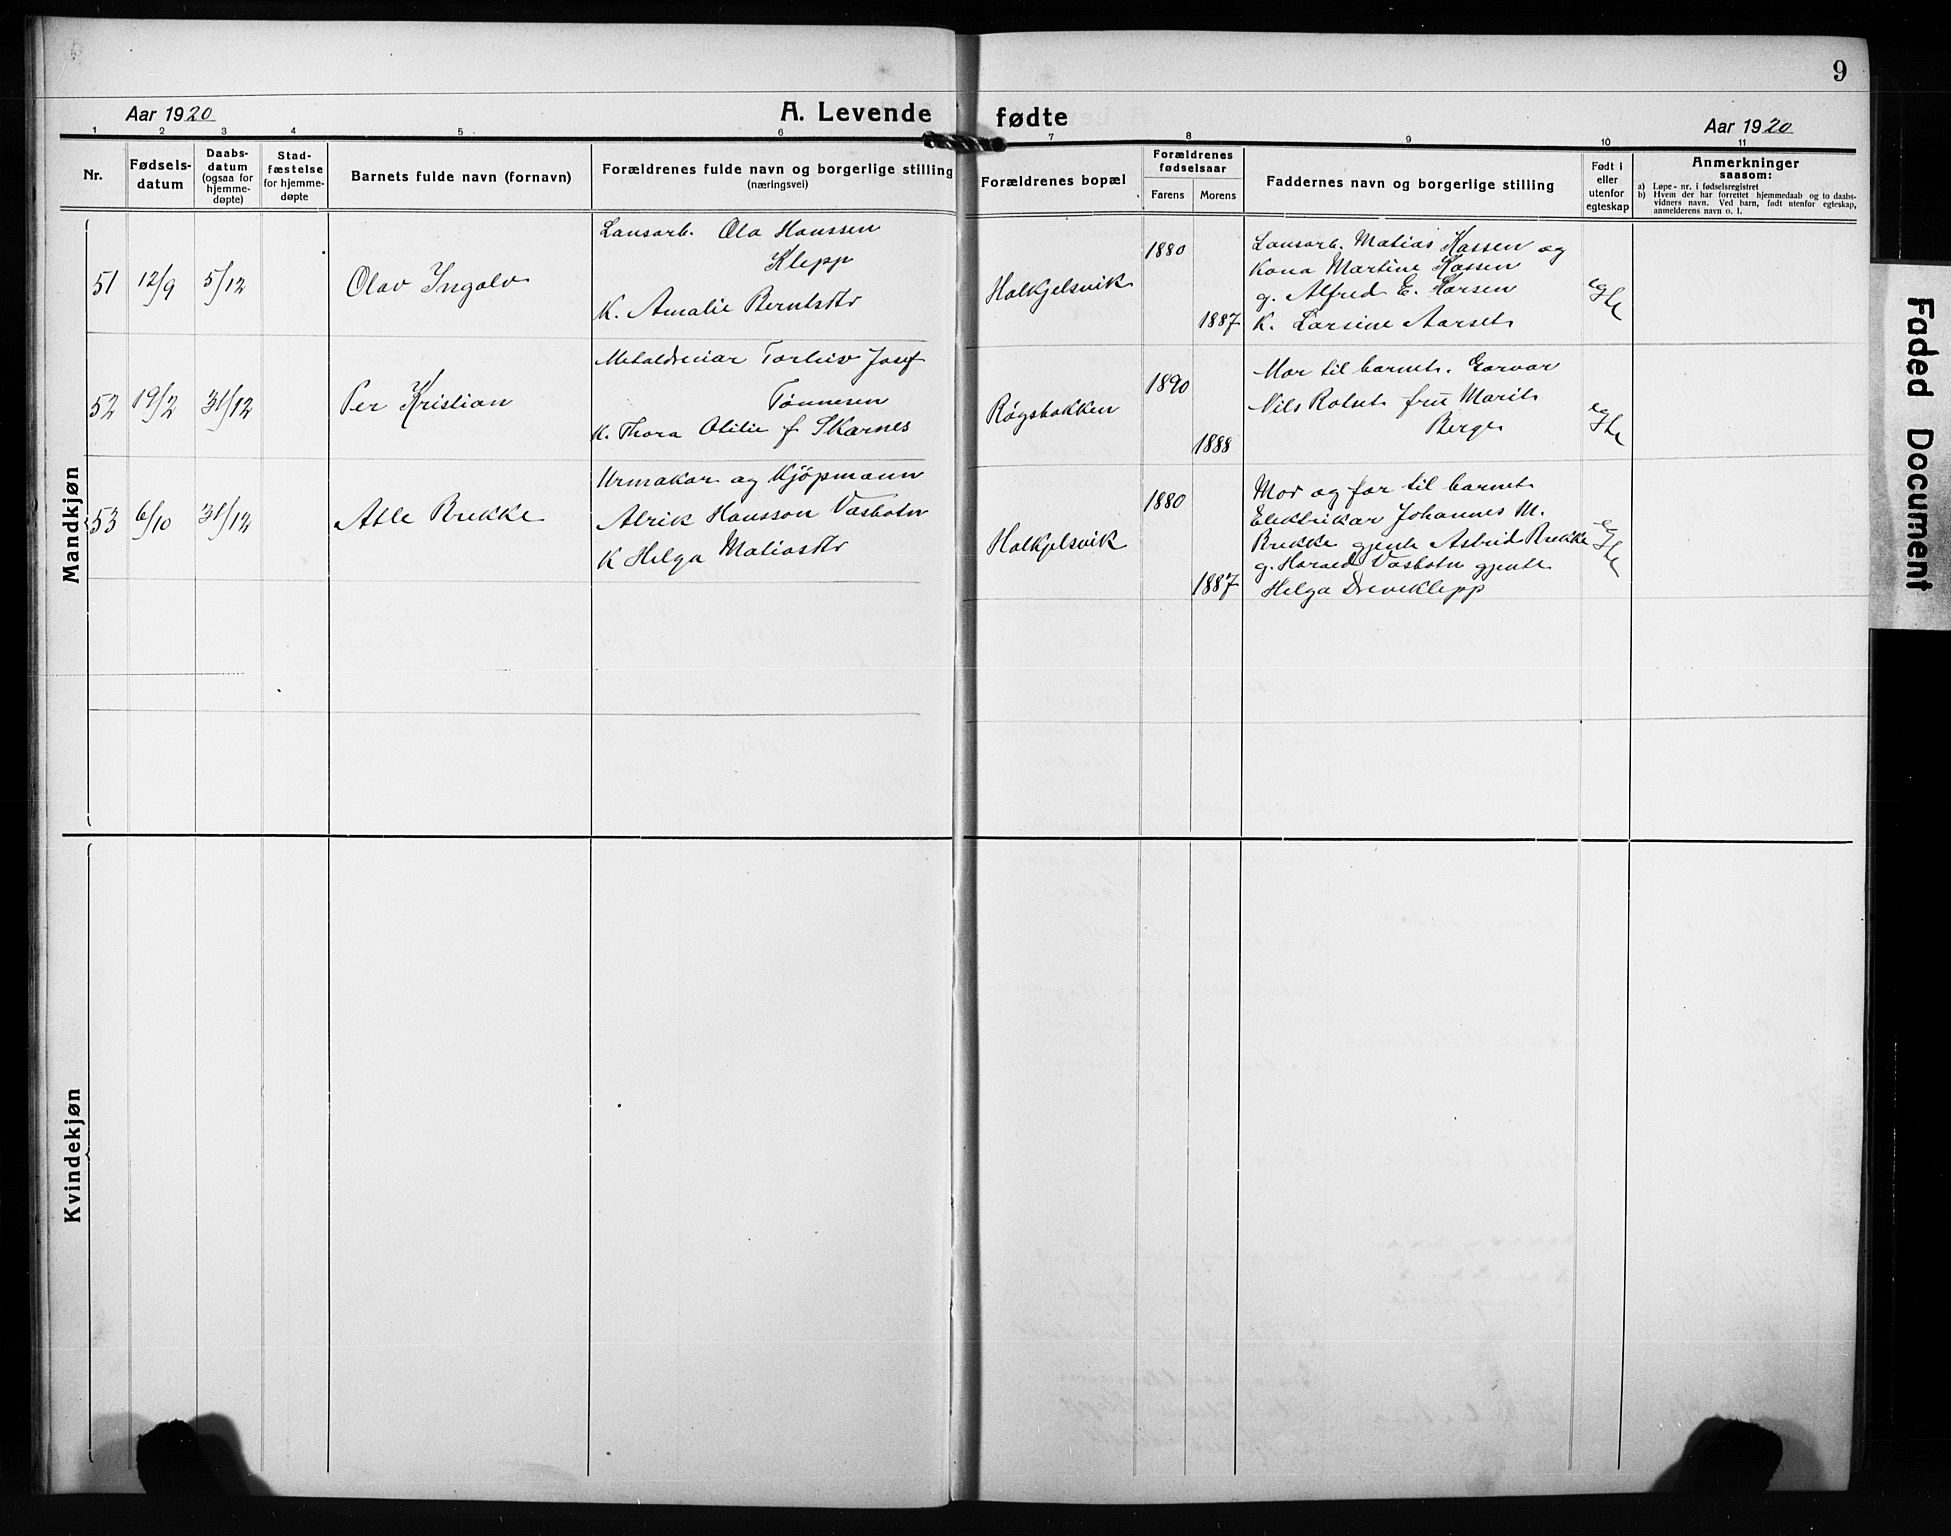 9
Aar 1920
A. Levende fødte
Aar 1920
1 2 3 4 5 6 7 8 9 10 11
Nr.
Fødsels-
datum
Daabs-
datum
(ogsaa for
hjemme-
døpte)
Stad-
fæstelse
for hjemme-
døpte
Barnets fulde navn (fornavn)
Forældrenes fulde navn og borgerlige stilling
(næringsvei)
Forældrenes bopæl
Forældrenes
fødselsaar
Farens
Morens
Faddernes navn og borgerlige stilling
Født i
eller
utenfor
egteskap
Anmerkninger
saasom:
a) Løpe-nr. i fødselsregistret
b) Hvem der har forrettet hjemmedaab og to daabs-
vidners navn. Ved barn, født utenfor egteskap,
anmelderens navn o. l.
Mandkjøn
51
12/9
5/12
Olav Ingolv
Lausarb. Ola Hanssen
Klepp
K. Amalie Berntsdtr
1880
1887
Lausarb. Matias Kassen og
Kona Martine Kassen
g. Alfred E. Larsen
K. Larsine Aarset
egte
52
19/2
31/12
Per Kristian
Torleiv Josef
Tønnesen
K. Thora Otilie f. Skarnes
Røgsbakken
1890
1888
Mor til barnet. Garvar
Nils Rotset frú Marit
Berge
egte
53
6/10
31/12
Atle Brekke
Urmakar og Kjöpmann
Alrik Hansson Vasbotn
K Helga Matiasdtr
1880
1887
Mor og far til barnet
Elektrikar Johannes M.
Brekke gjente Astrid Brekke
g. Harald Vasbotn gjente
Helga Dreveklepp
egte
Kvindekjøn
Faded Document